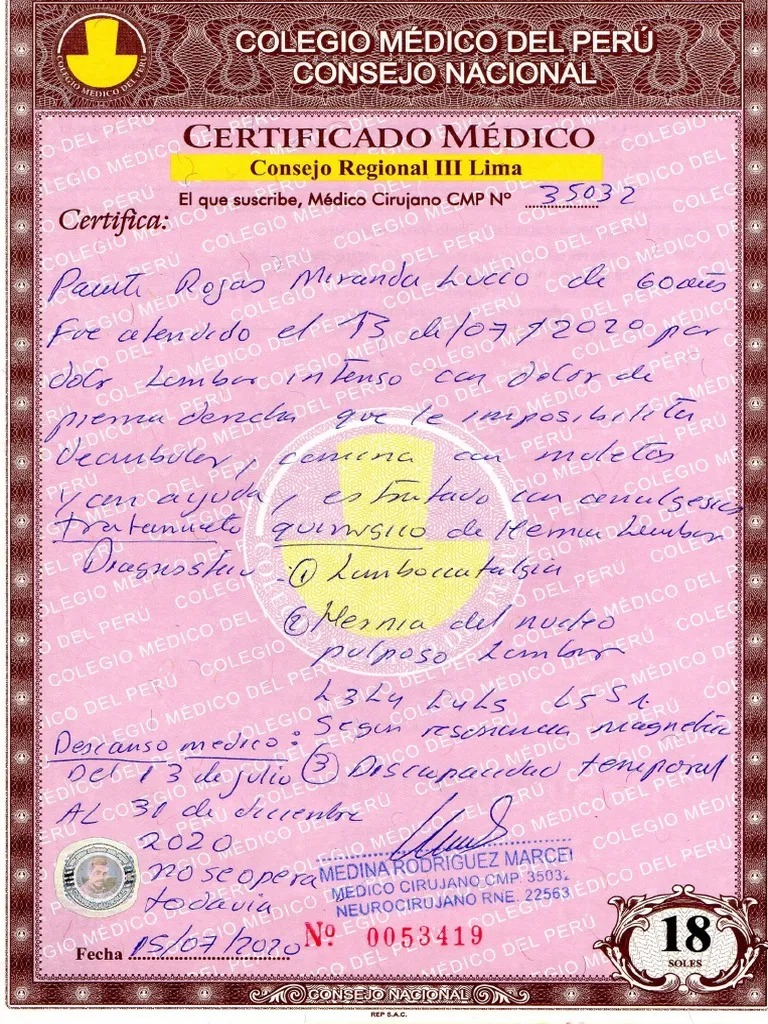 COLEGIO MÉDICO DEL PERÚ
COLEGIO MÉDICO DEL PERÚ
CONSEJO NACIONAL
CERTIFICADO MÉDICO
Consejo Regional III Lima
El que suscribe, Médico Cirujano CMP Nº 35032
Certifica:
Rojas Miranda Lucio de 60 años
Fue atendido el 13 de/07/2020 por
dolor Lumbar intenso con dolor de
pierna derecha que le imposibilita
deambular, camina con muletas
y con ayuda, es tratado con analgesico
tratamiento quirurgico de Hernia Lumbar
Diagnostico: ① Lumbociatalgia
② Hernia del nucleo
pulposo Lumbar
L3L4 L4L5 L5S1
Segun resonancia magnetica
Descanso medico:
Del 13 de julio ③ Discapacidad temporal
AL 31 de diciembre
2020
no se opera
todavia
MEDINA RODRIGUEZ MARCEL
MEDICO CIRUJANO CMP 35032
NEUROCIRUJANO RNE. 22563
Fecha 15/07/2020
Nº 0053419
18
SOLES
CONSEJO NACIONAL
REP S.A.C.